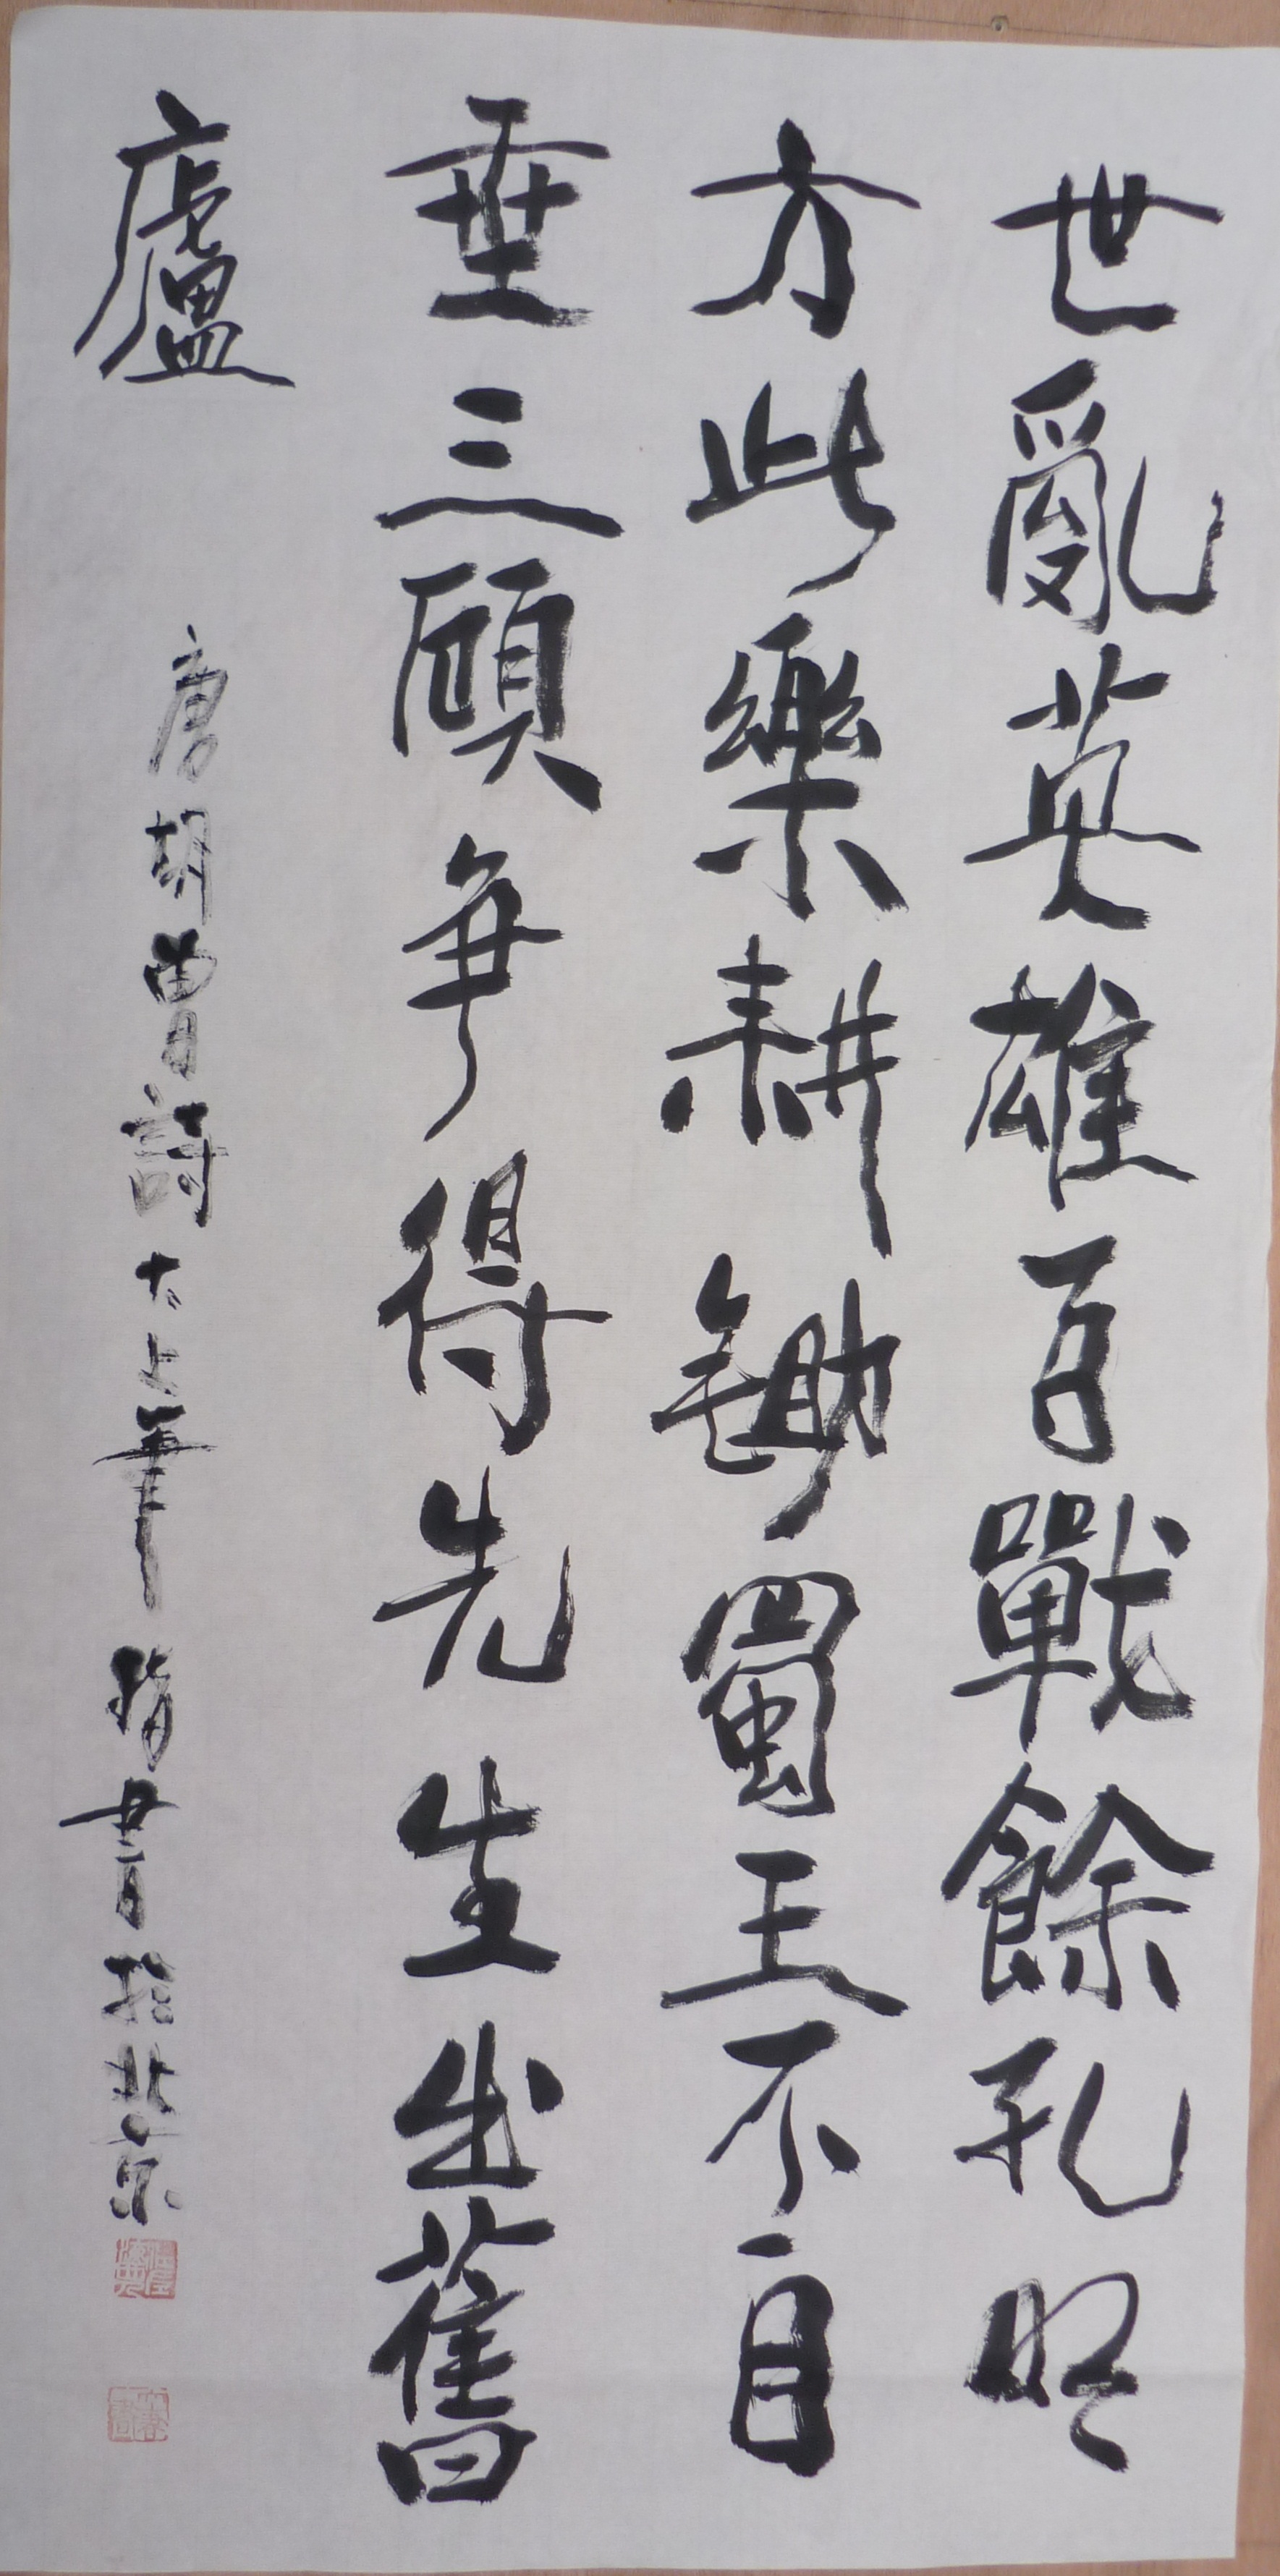 世亂英雄百戰餘孔明
方此樂耕鋤蜀王不自
垂三顧爭得先生出舊
廬
唐胡曾詩大上筆 書於北京